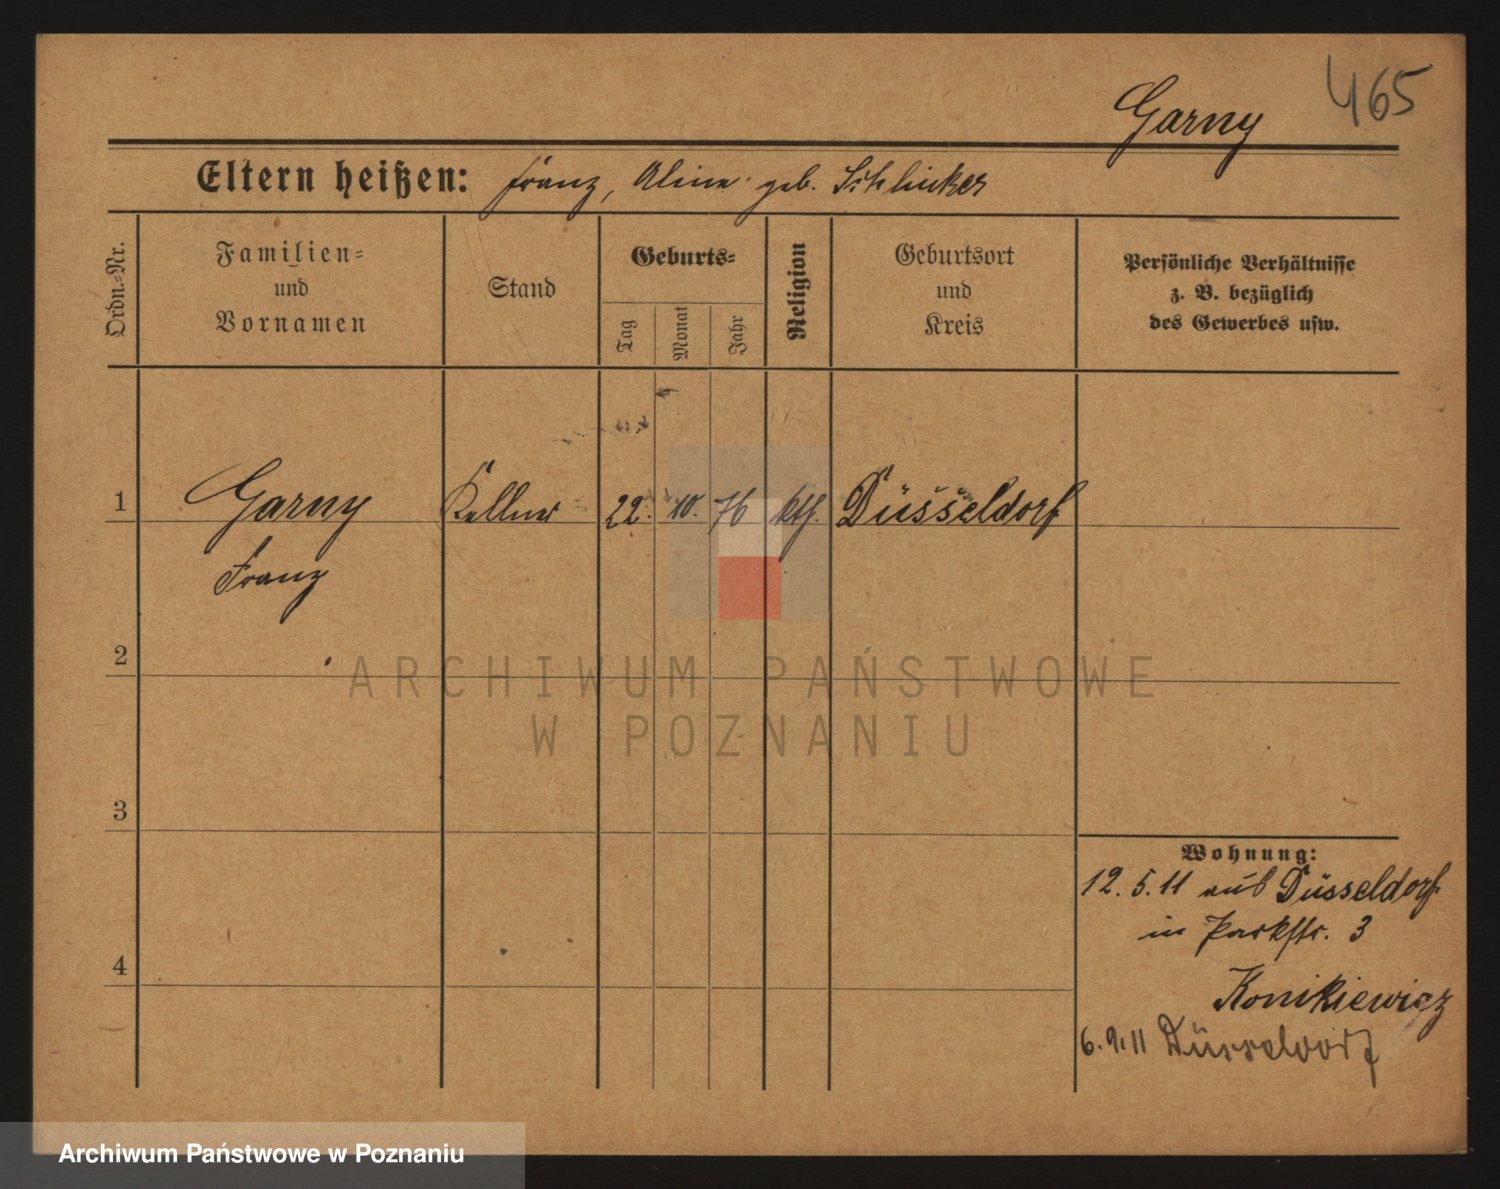 465
Garny
Eltern heißen: Franz, Aline geb. Schlicker
Ordn.=Nr.
Familien=
und
Vornamen
Stand
Geburts=
Tag
Monat
Jahr
Religion
Geburtsort
und
Kreis
Persönliche Verhältnisse
z. B. bezüglich
des Gewerbes usw.
1 Garny Kellner 22. 10. 76 kth. Düsseldorf
Franz
2
3
4
Wohnung:
12. 5. 11 aus Düsseldorf
in Parkstr. 3
Konikiewicz
6. 9. 11 Düsseldorf
ARCHIWUM PAŃSTWOWE
W POZNANIU
Archiwum Państwowe w Poznaniu